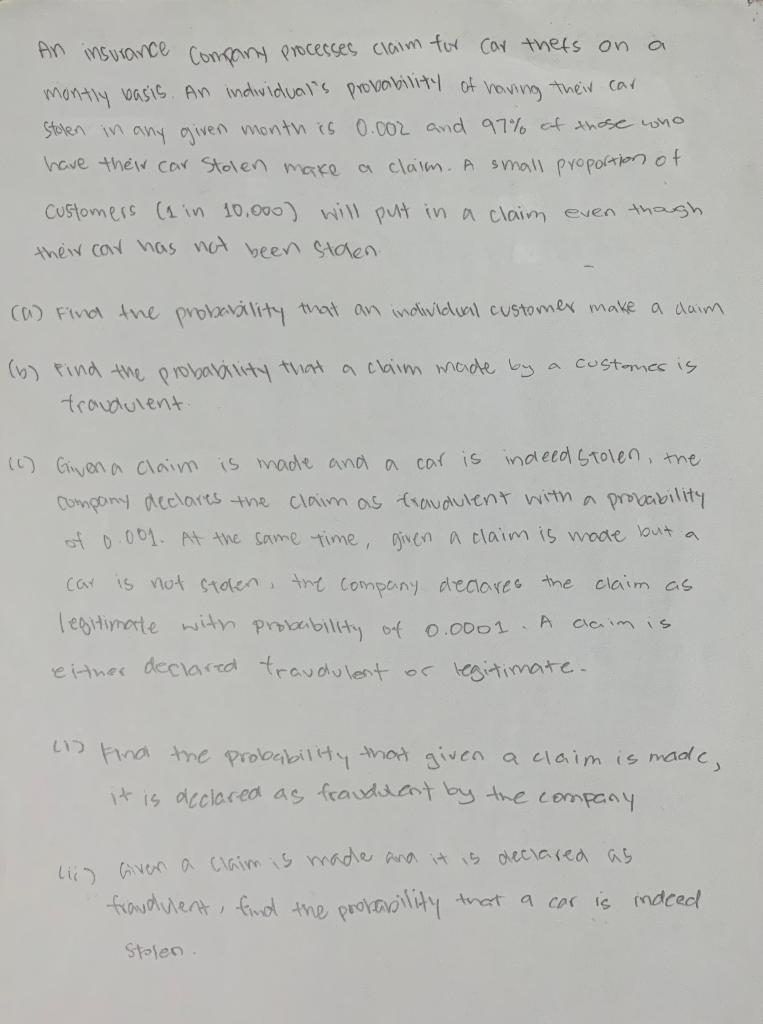 An insurance company processes claim for car thefs on a
montly basis. An individual's probability of having their car
stolen in any given month is 0.002 and 97% of those who
have their car stolen make a claim. A small proportion of
customers (1 in 10,000) will put in a claim even though
their car has not been stolen
(a) Find the probability that an individual customer make a claim
(b) Find the probability that a claim made by a customer is
fraudulent.
(c) Given a claim is made and a car is indeed stolen, the
company declares the claim as fraudulent with a probability
of 0.001. At the same time, given a claim is made but a
car is not stolen, the company declares the claim as
legitimate with probability of 0.0001. A claim is
either declared fraudulent or legitimate.
(i) Find the probability that given a claim is made,
it is declared as fraudulent by the company
(ii) Given a claim is made and it is declared as
fraudulent, find the probability that a car is indeed
stolen.